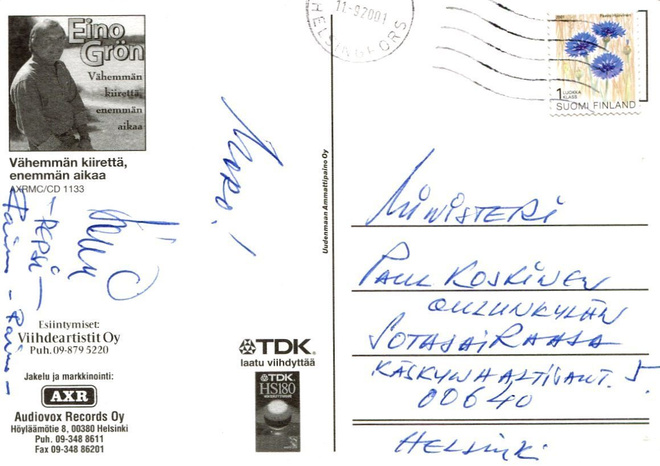 Eino
Grön
Vähemmän
kiirettä,
enemmän
aikaa
Vähemmän kiirettä,
enemmän aikaa
AXRMC/CD 1133
- PEPSI -
Raimo - Raimo -
Esiintymiset:
Viihdeartistit Oy
Puh. 09-879 5220
Jakelu ja markkinointi:
AXR
Audiovox Records Oy
Höyläämötie 8, 00380 Helsinki
Puh. 09-348 8611
Fax 09-348 86201
11.-9.2001
HELSINGFORS
Moro!
Uudenmaan Ammattipaino Oy
TDK.
laatu viihdyttää
TDK
HS180
1 LUOKKA
KLASS
SUOMI FINLAND
MINISTERI
PAUL KOSKINEN
OULUNKYLÄN
SOTASAIRAALA
KÄSKYNHALTIJANT. 5
00640
HELSINKI